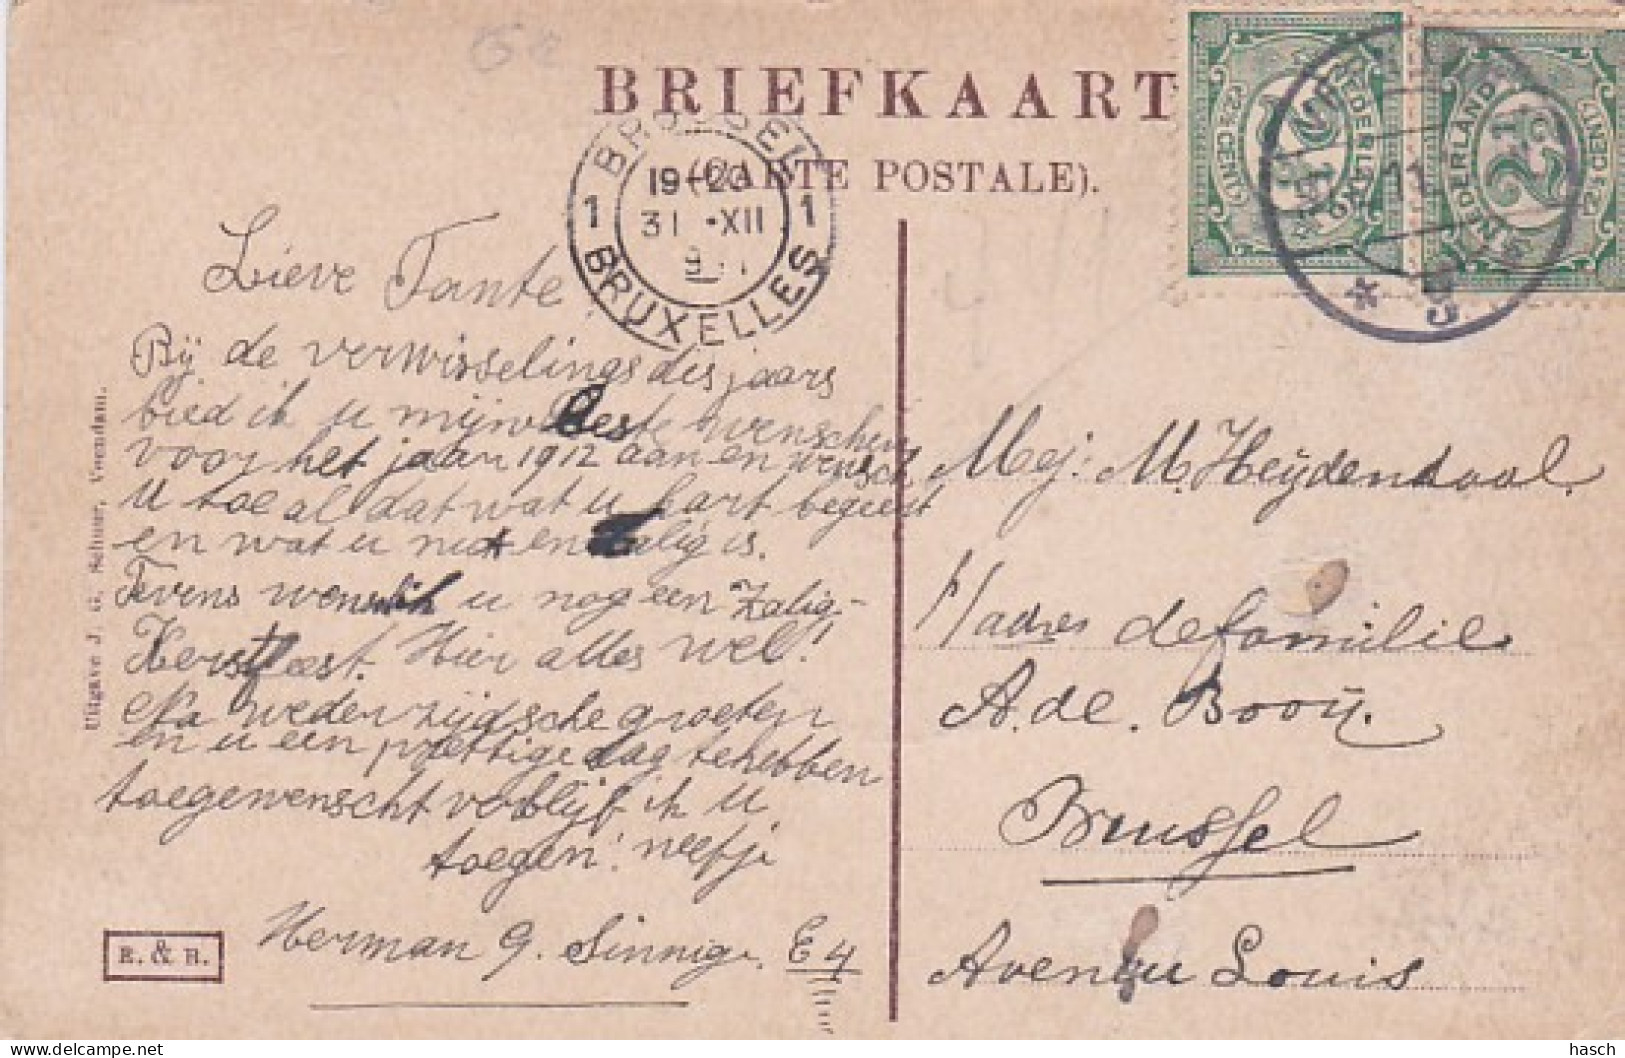 BRIEFKAART
(CARTE POSTALE).
BRUSSEL
19-20
1 31 -XII 1
BRUXELLES
NEDERLAND
2½
(2½ CENT)
NEDERLAND
2½
(2½ CENT)
Lieve Tante
Bij de verwisseling des jaars
bied ik u mijn beste wenschen
voor het jaar 1912 aan en wensch
u toe al dat wat u hart begeert
en wat u nut en zalig is.
Tevens wensch ik u nog een Zalig-
Kerstfeest. Hier alles wel!
Na wederzijdsche groeten
en u een prettige dag te hebben
toegewenscht verblijf ik u
toegen: neefje
Herman G. Sinnige. E 4
Mej: M. Heijdendaal.
p/adres de familie
A. de. Booij.
Brussel
Avenue Louis
Uitgave J. G. Schuur, Veendam.
R. & R.
hasch